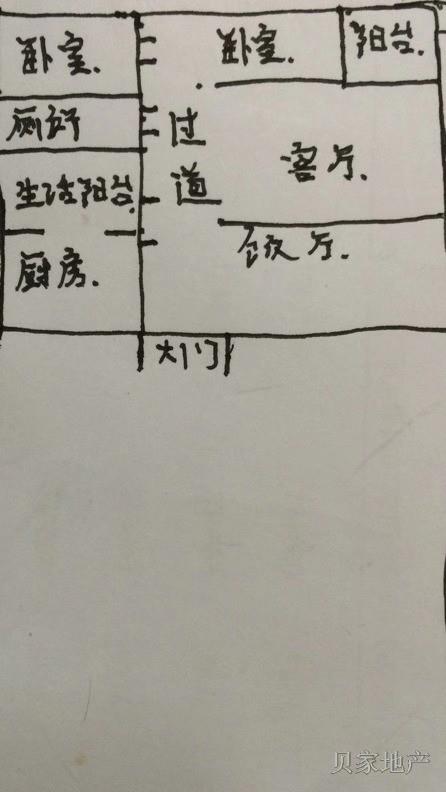 卧室.
卧室.
阳台.
厕所
过
道
客厅.
生活阳台.
饭厅.
厨房.
大门
贝家地产